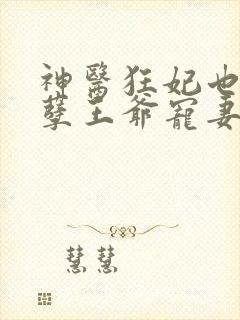 神醫狂妃也
孽王爺寵妻
慧慧